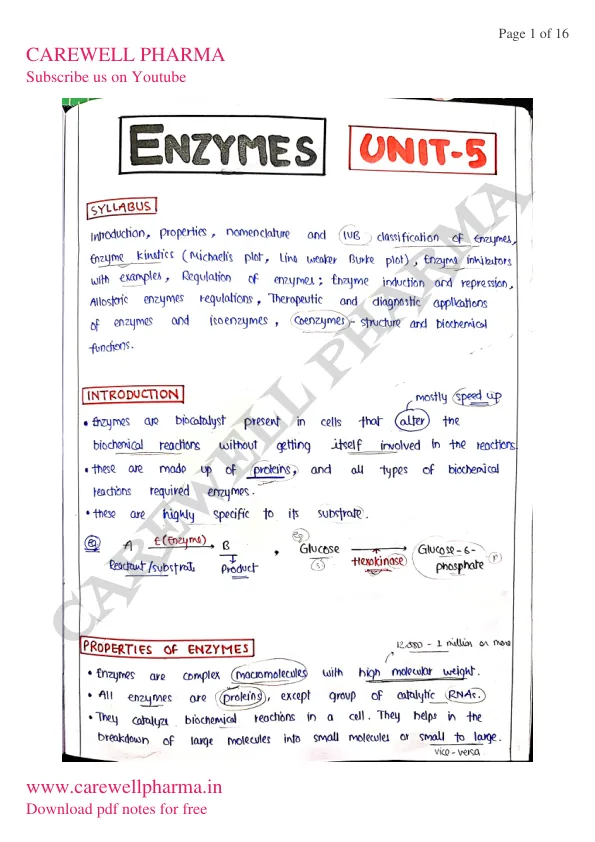 Page 1 of 16
CAREWELL PHARMA
Subscribe us on Youtube
ENZYMES UNIT-5
SYLLABUS
Introduction, properties, nomenclature and IUB classification of Enzymes,
Enzyme kinetics (Michaelis plot, Line weaker Burke plot), Enzyme inhibitors
with examples, Regulation of enzymes; Enzyme induction and repression,
Allosteric enzymes regulations, Therapeutic and diagnostic applications
of enzymes and isoenzymes, Coenzymes - structure and biochemical
functions.
INTRODUCTION
mostly speed up
• Enzymes are biocatalyst present in cells that alter the
biochemical reactions without getting itself involved in the reactions.
• these are made up of proteins, and all types of biochemical
reactions required enzymes.
• these are highly specific to its substrate.
eg A E(Enzyme) → B , eg Glucose → Glucose-6-
Reactant/substrate Product (S) Hexokinase phosphate (P)
PROPERTIES OF ENZYMES
12,000 - 1 million or more
• Enzymes are complex macromolecules with high molecular weight.
• All enzymes are proteins, except group of catalytic RNAs.
• They catalyze biochemical reactions in a cell. They helps in the
breakdown of large molecules into small molecules or small to large.
vice-versa
CAREWELL PHARMA
www.carewellpharma.in
Download pdf notes for free